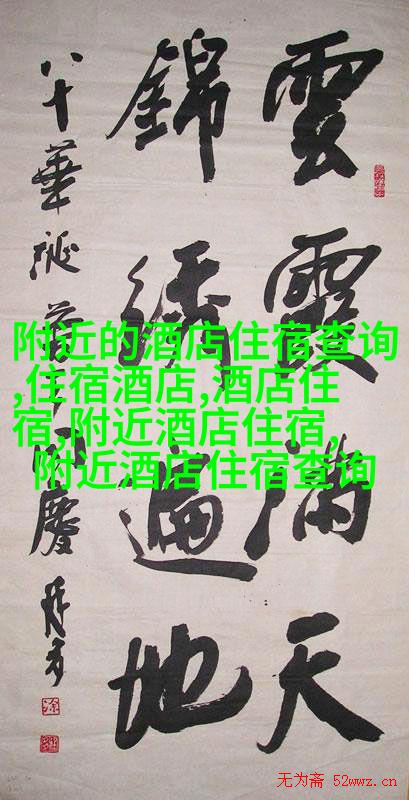 雲霞滿天
錦綉遍地
八十華誕普天同慶
附近的酒店住宿查询
,住宿酒店,酒店住
宿,附近酒店住宿,
附近酒店住宿查询
无为斋 52wwz.cn